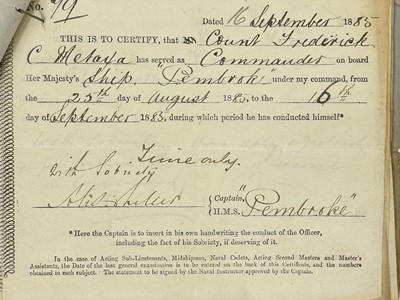 No. 79
Dated 16 September 1885
THIS IS TO CERTIFY, that Mr. Count Frederick
C. Metaxa has served as Commander on board
Her Majesty's Ship "Pembroke" under my command, from
the 25th day of August 1885. to the 16th
day of September 1885. during which period he has conducted himself*
Time only.
with Sobriety
Captain,
H.M.S. "Pembroke"
* Here the Captain is to insert in his own handwriting the conduct of the Officer,
including the fact of his Sobriety, if deserving of it.
In the case of Acting Sub-Lieutenants, Midshipmen, Naval Cadets, Acting Second Masters and Master's
Assistants, the Date of the last general examination is to be entered on the back of this Certificate, and the numbers
obtained in each subject. The statement to be signed by the Naval Instructor approved by the Captain.